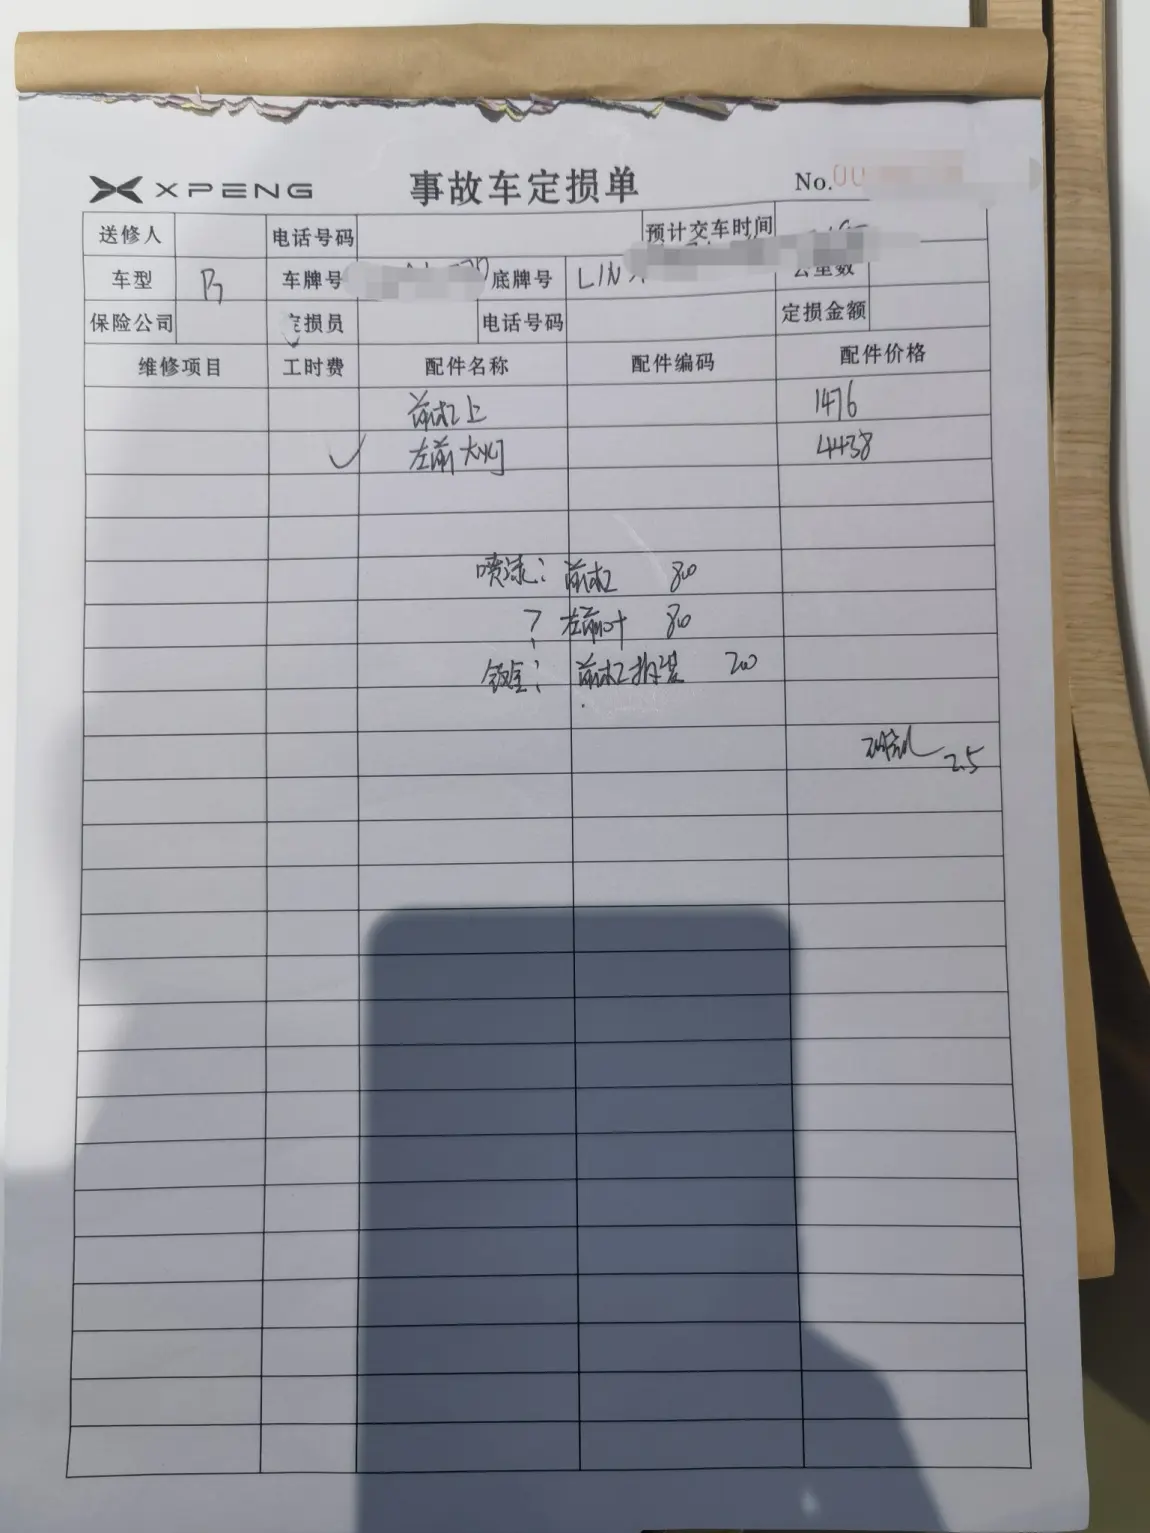 XPENG 事故车定损单 No.00
送修人 电话号码 预计交车时间
车型 P7 车牌号 底牌号 LIN 公里数
保险公司 定损员 电话号码 定损金额
维修项目 工时费 配件名称 配件编码 配件价格
前杠上 1476
✓ 左前大灯 4438
喷漆: 前杠 800
左前叶 800
钣金: 前杠拆装 200
2.5